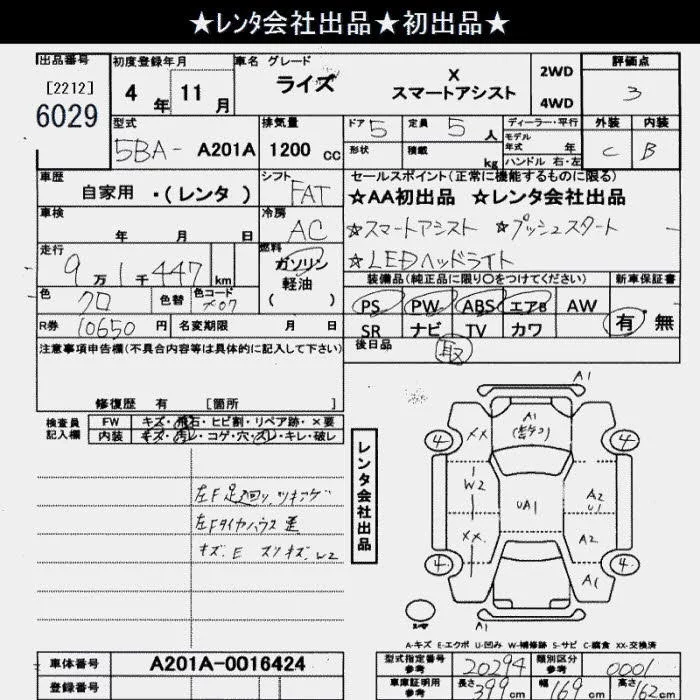 ★レンタ会社出品★初出品★
出品番号 初度登録年月 車名 グレード 2WD 4WD 評価点
[2212] 6029 4年 11月 ライズ X スマートアシスト 3
型式 排気量 ドア 5 定員 5人 ディーラー・平行 外装 内装
5BA- A201A 1200cc 形状 積載 kg モデル年式 年 C B
ハンドル 右・左
車歴 シフト セールスポイント(正常に機能するものに限る)
自家用 ・(レンタ) FAT ☆AA初出品 ☆レンタ会社出品
車検 年 月 日 冷房 AC ☆スマートアシスト ☆プッシュスタート
走行 9万1千447km 燃料 ガソリン 軽油 ( ) ☆LEDヘッドライト
色 クロ 色替 色コード X07 装備品(純正品に限り○をつけてください) 新車保証書
R券 10650円 名変期限 月 日 PS PW ABS エアB AW 有・無
SR ナビ TV カワ
注意事項申告欄(不具合内容等は具体的に記入して下さい) 後日品 取
修復歴 有 [箇所 ]
検査員記入欄 FW キズ・飛石・ヒビ割・リペア跡・×要
内装 キズ・汚レ・コゲ・穴・スレ・キレ・破レ
レンタ会社出品
A1
A1
4 XX 4
W2 UA1 A2
U1
XX A2
4 A1 4
A1
左F 足廻り ツキアゲ
左Fタイヤハウス 歪
キズ E スリキズ W2
A-キズ E-エクボ U-凹み W-補修跡 S-サビ C-腐食 XX-交換済
車体番号 A201A-0016424 型式指定番号 参考 20294 類別区分 参考 0001
登録番号 車庫証明用 参考 長さ 399cm 幅 169cm 高さ 162cm